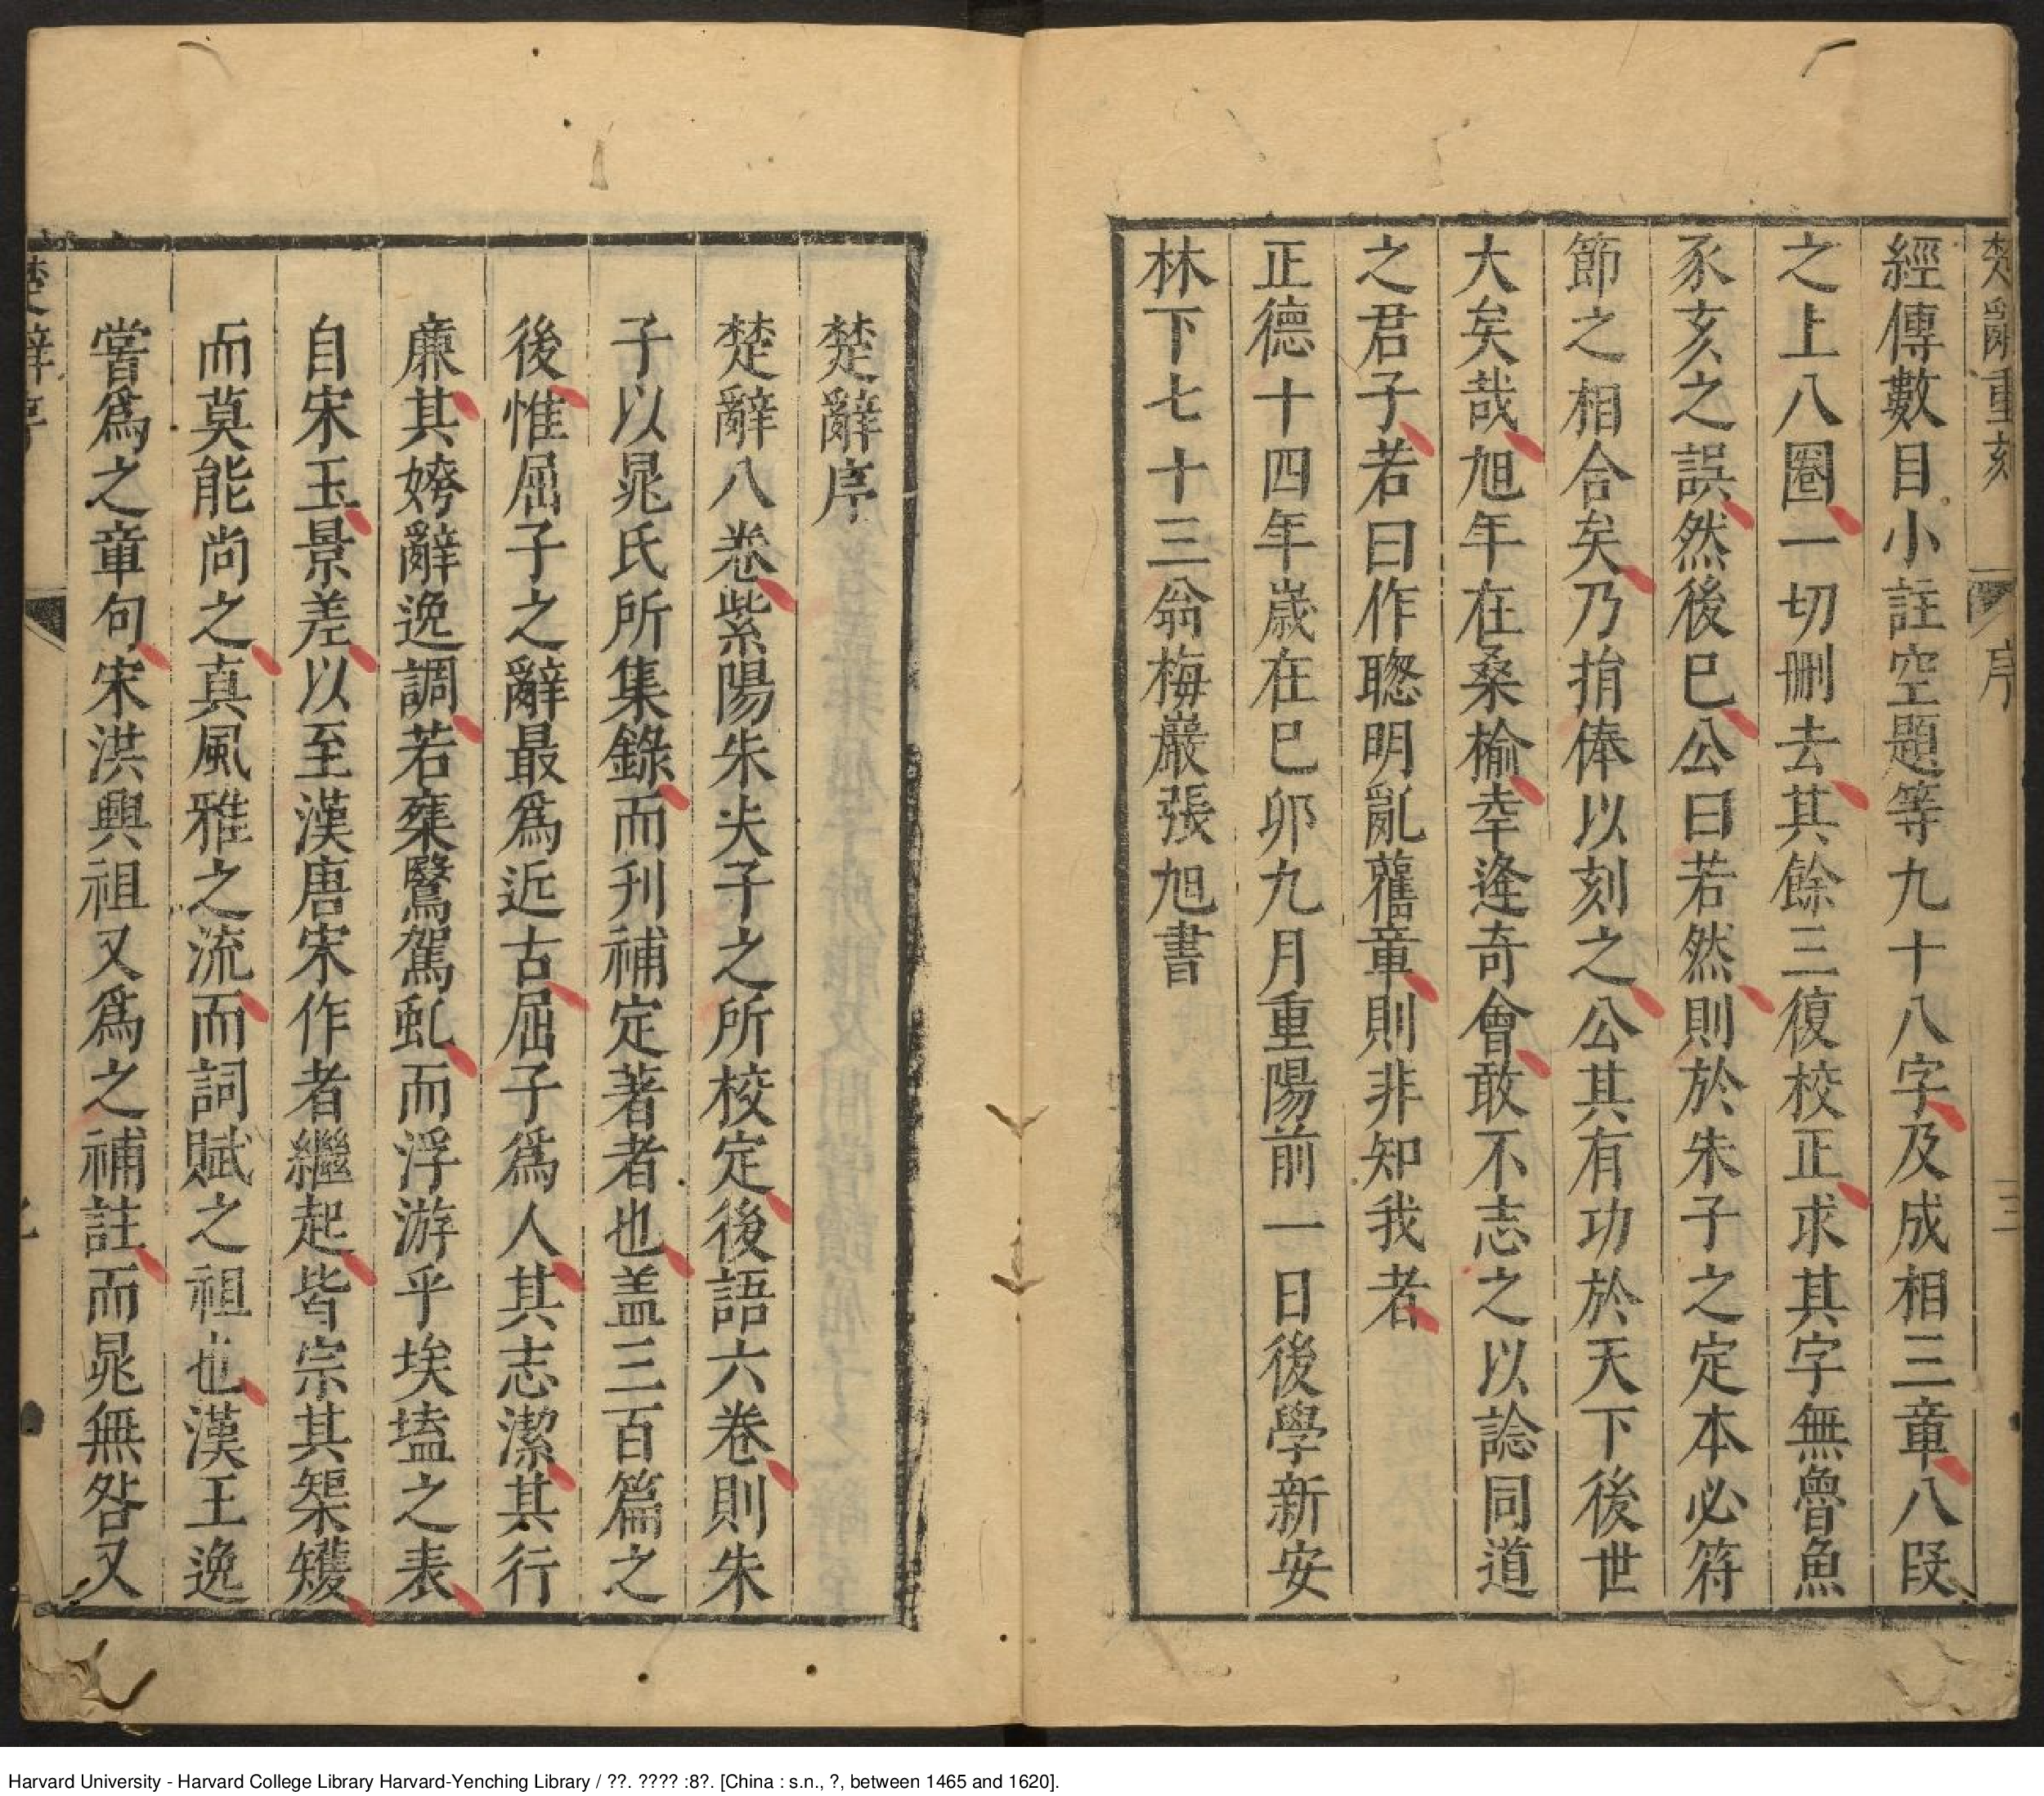 楚辭重刻 序 三
經傳數目小註空題等九十八字及成相三章八段
之上八圈一切刪去其餘三復校正求其字無魯魚
豕亥之誤然後巳公曰若然則於朱子之定本必符
節之相合矣乃捐俸以刻之公其有功於天下後世
大矣哉旭年在桑榆幸逢奇會敢不志之以諗同道
之君子若曰作聰明亂舊章則非知我者
正德十四年歲在巳卯九月重陽前一日後學新安
林下七十三翁梅巖張旭書
楚辭序
楚辭八卷紫陽朱夫子之所校定後語六卷則朱
子以晁氏所集錄而刋補定著者也盖三百篇之
後惟屈子之辭最爲近古屈子爲人其志潔其行
廉其姱辭逸調若椉鷖駕虬而浮游乎埃壒之表
自宋玉景差以至漢唐宋作者繼起皆宗其榘矱
而莫能尚之真風雅之流而詞賦之祖也漢王逸
嘗爲之章句宋洪興祖又爲之補註而晁無咎又
楚辭序
Harvard University - Harvard College Library Harvard-Yenching Library / ??. ???? :8?. [China : s.n., ?, between 1465 and 1620].